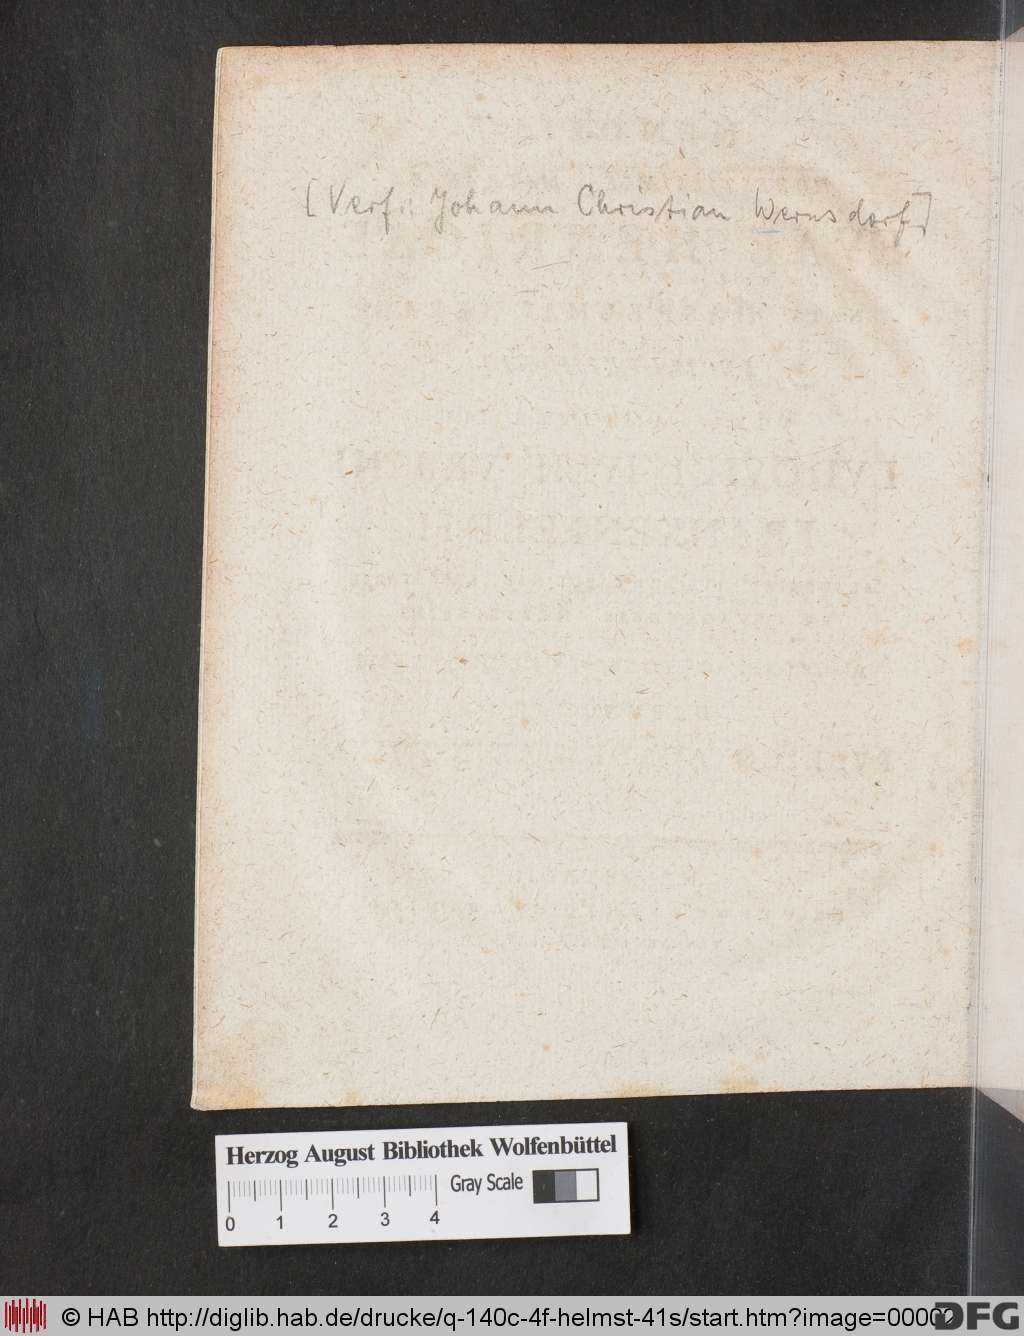 [Verf.: Johann Christian Wernsdorf]
Herzog August Bibliothek Wolfenbüttel
Gray Scale
0 1 2 3 4
© HAB http://diglib.hab.de/drucke/q-140c-4f-helmst-41s/start.htm?image=00002
DFG